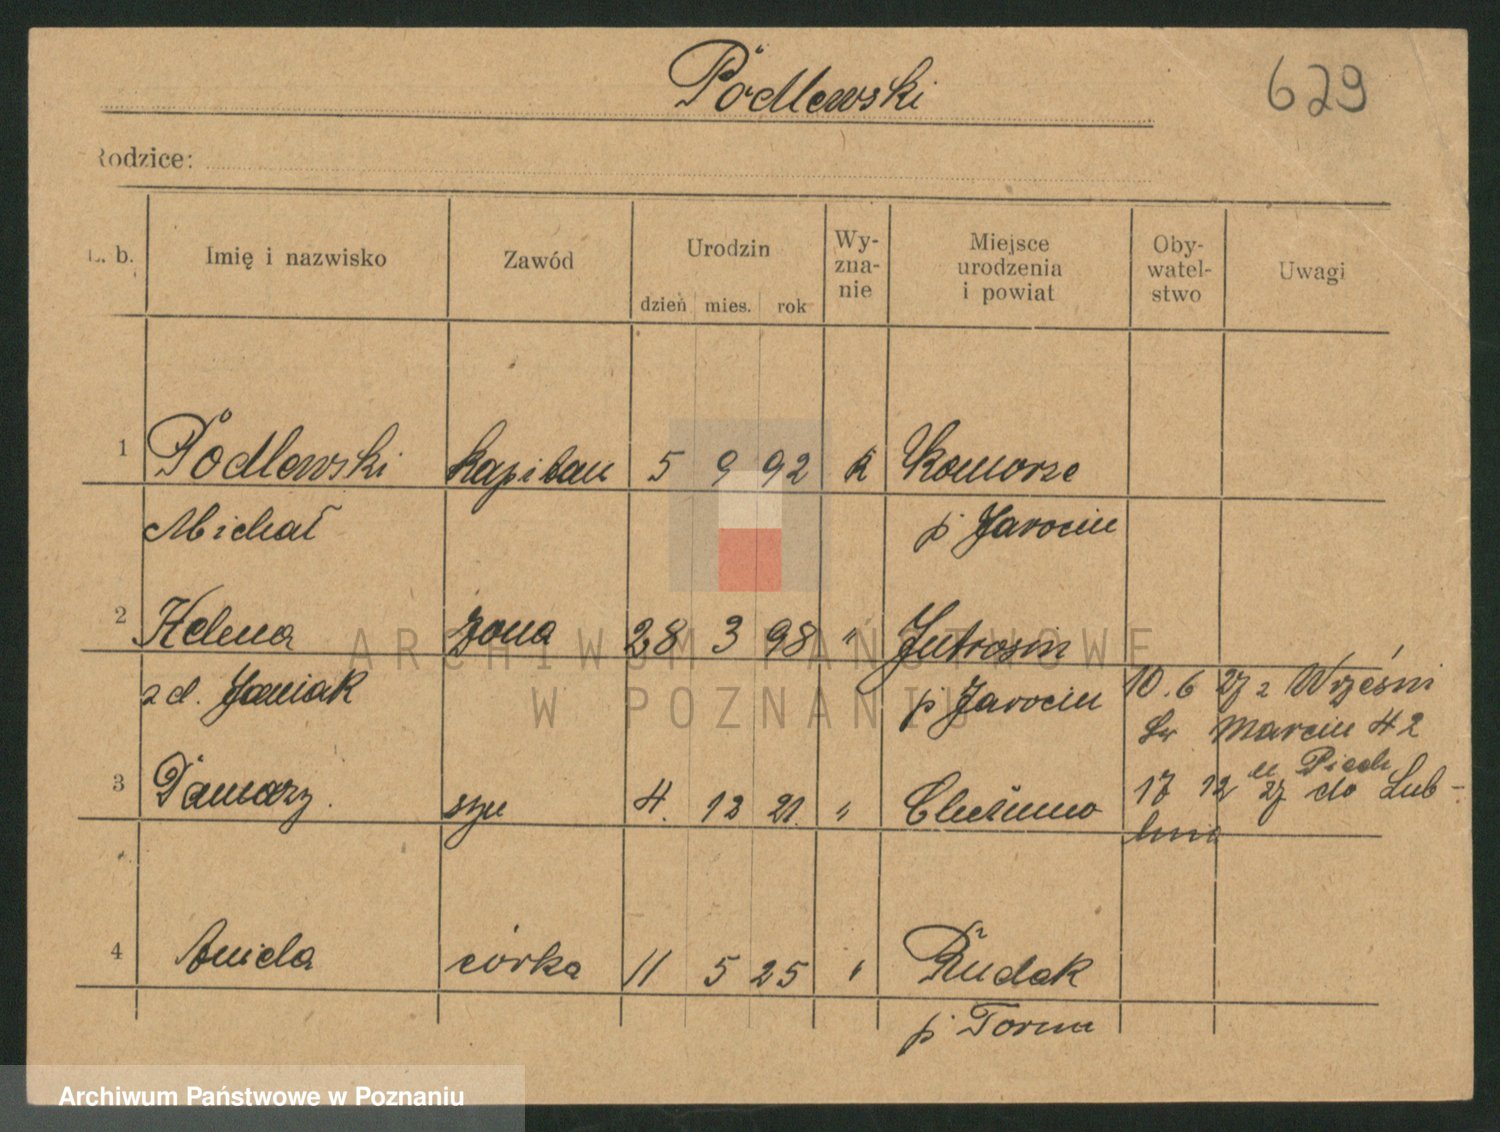 Podlewski
629
Rodzice:
L. b. Imię i nazwisko Zawód Urodzin Wy- Miejsce Oby- Uwagi
zna- urodzenia watel-
dzień mies. rok nie i powiat stwo
1 Podlewski kapitan 5 9 92 k Komorze
Michał p. Jarocin
2 Helena żona 28 3 98 " Jutrosin
z d. Janiak p. Jarocin 10. 6 27 z Wrześni
Św Marcin 42
3 syn 4. 12 21. " 17 12 27 do Lub-
lina
4 córka 11 5 25 " Rudak
p. Torun
ARCHIWUM PAŃSTWOWE
W POZNANIU
Archiwum Państwowe w Poznaniu